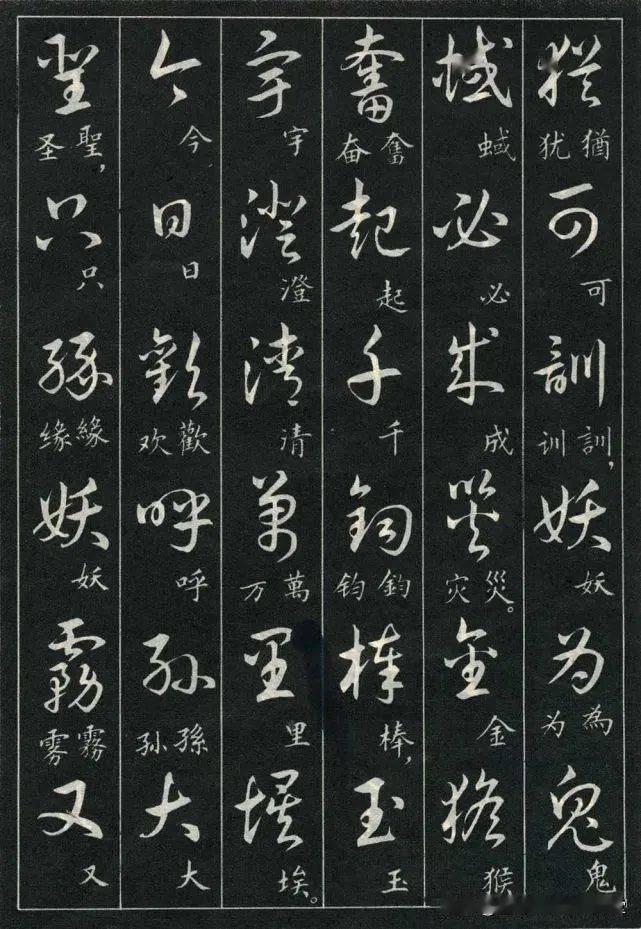 猶 猶犹 可 可 訓 訓，训 妖 妖 為 為为 鬼 鬼
蜮 蜮 必 必 成 成 災 災。灾 金 金 猴 猴
奮 奮奋 起 起 千 千 鈞 鈞钧 棒 棒， 玉 玉
宇 宇 澄 澄 清 清 萬 萬万 里 里 埃 埃。
今 今 日 日 歡 歡欢 呼 呼 孫 孫孙 大 大
聖 聖，圣 只 只 緣 緣缘 妖 妖 霧 霧雾 又 又